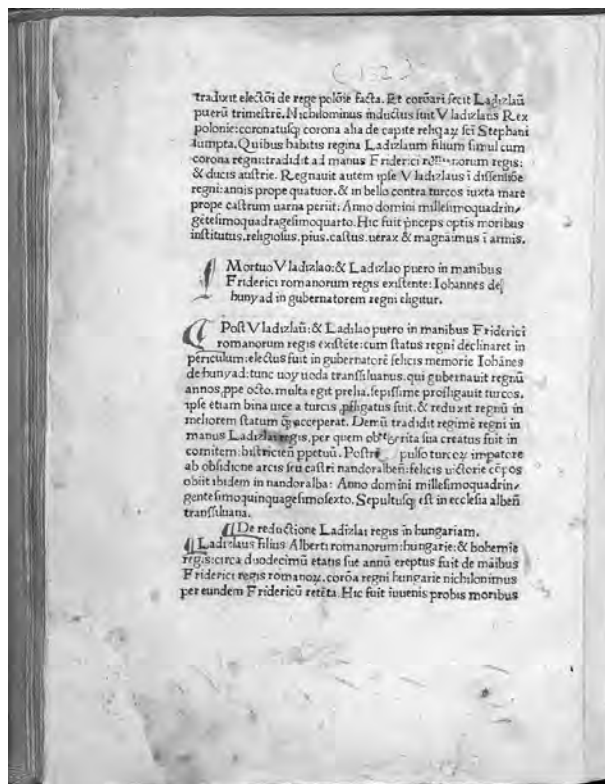 (132)
traduxit electõi de rege polõie facta. Et corõari fecit Ladizlaũ
puerũ trimestrẽ. Nichilominus inductus fuit Vladizlaus Rex
polonie: coronatusq; corona alia de capite reliqaꝝ scĩ Stephani
sumpta. Quibus habitis regina Ladizlaum filium simul cum
corona regni: tradidit ad manus Friderici norum regis:
& ducis austrie. Regnauit autem ipse Vladizlaus ĩ dissensiõe
regni: annis prope quatuor. & in bello contra turcos iuxta mare
prope castrum uarna periit: Anno domini millesimoquadrin⸗
gẽtesimoquadragesimoquarto. Hic fuit p̃nceps optis moribus
institutus. religiosus. pius. castus. uerax & magnaĩmus ĩ armis.
Mortuo Vladizlao: & Ladizlao puero in manibus
Friderici romanorum regis existente: Iohannes de
hunyad in gubernatorem regni eligitur.
Post Vladizlaũ: & Ladilao puero in manibus Friderici
romanorum regis existẽte: cum status regni declinaret in
periculum: electus fuit in gubernatorẽ felicis memorie Iohãnes
de hunyad: tunc uoyuoda transsiluanus. qui gubernauit regnũ
annos ꝓpe octo. multa egit prelia. sepissime profligauit turcos.
ipse etiam bina uice a turcis ꝓfligatus fuit. & reduxit regnũ in
meliorem statum q̃ acceperat. Demũ tradidit regimẽ regni in
manus Ladizlai regis. per quem ob merita sua creatus fuit in
comitem: bistricien̄ ppetuũ. Postre pulso turcoꝝ impatore
ab obsidione arcis seu castri nandoralben̄: felicis uictorie cõpos
obiit ibidem in nandoralba: Anno domini millesimoquadrin⸗
gentesimoquinquagesimosexto. Sepultusq; est in ecclesia alben̄
transsiluana.
¶ De reductione Ladizlai regis in hungariam.
¶ Ladizlaus filius Alberti romanorum: hungarie: & bohemie
regis: circa duodecimũ etatis sue annũ ereptus fuit de mãibus
Friderici regis romanoꝝ. corõa regni hungarie nichilonimus
per eundem Fridericũ retẽta. Hic fuit iuuenis probis moribus